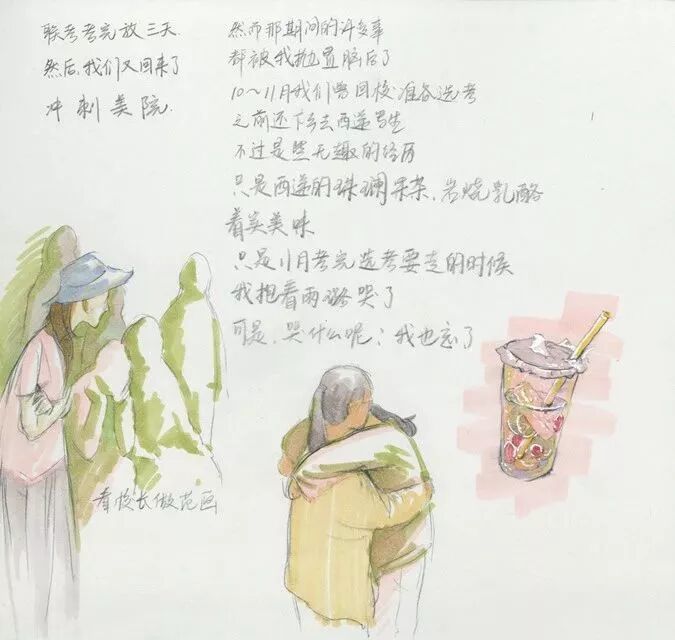 联考考完放三天
然后，我们又回来了
冲刺美院.
然而那期间的许多事
都被我抛置脑后了
10～11月我们要回校准备选考
之前还下乡去西递写生
不过是些无趣的经历
只是西递的珠斓果茶、岩烧乳酪
着实美味
只是11月考完选考要走的时候
我抱着雨哭了
可是，哭什么呢？我也忘了
看校长做范画